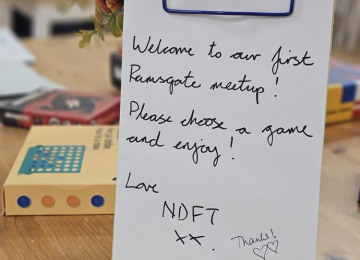 Welcome to our first
Ramsgate meetup!
Please choose a game
and enjoy!
Love
NDFT
xx.
Thanks!